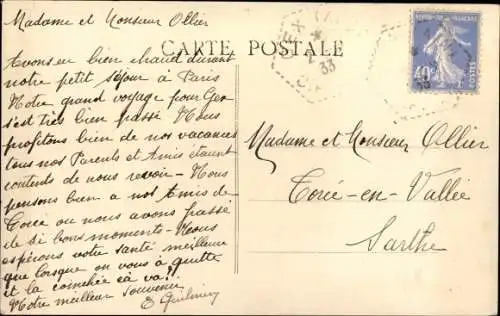 Madame et Monsieur Ollier
Avons eu bien chaud durant
notre petit séjour à Paris
Notre grand voyage pour Gex
s'est très bien passé Nous
profitons bien de nos vacances
tous nos Parents et Amis étaient
contents de nous revoir - Nous
pensons bien a nos Amis de
Torcé ou nous avons passé
de si bons moments - Nous
espérons votre santé meilleure
que lorsque on vous à quitté
et la coinchée çà va?!
Notre meilleur souvenir
CARTE POSTALE
GEX
33
REPUBLIQUE FRANÇAISE
40c
POSTES
Madame et Monsieur Ollier
Torcé-en-Vallée
Sarthe